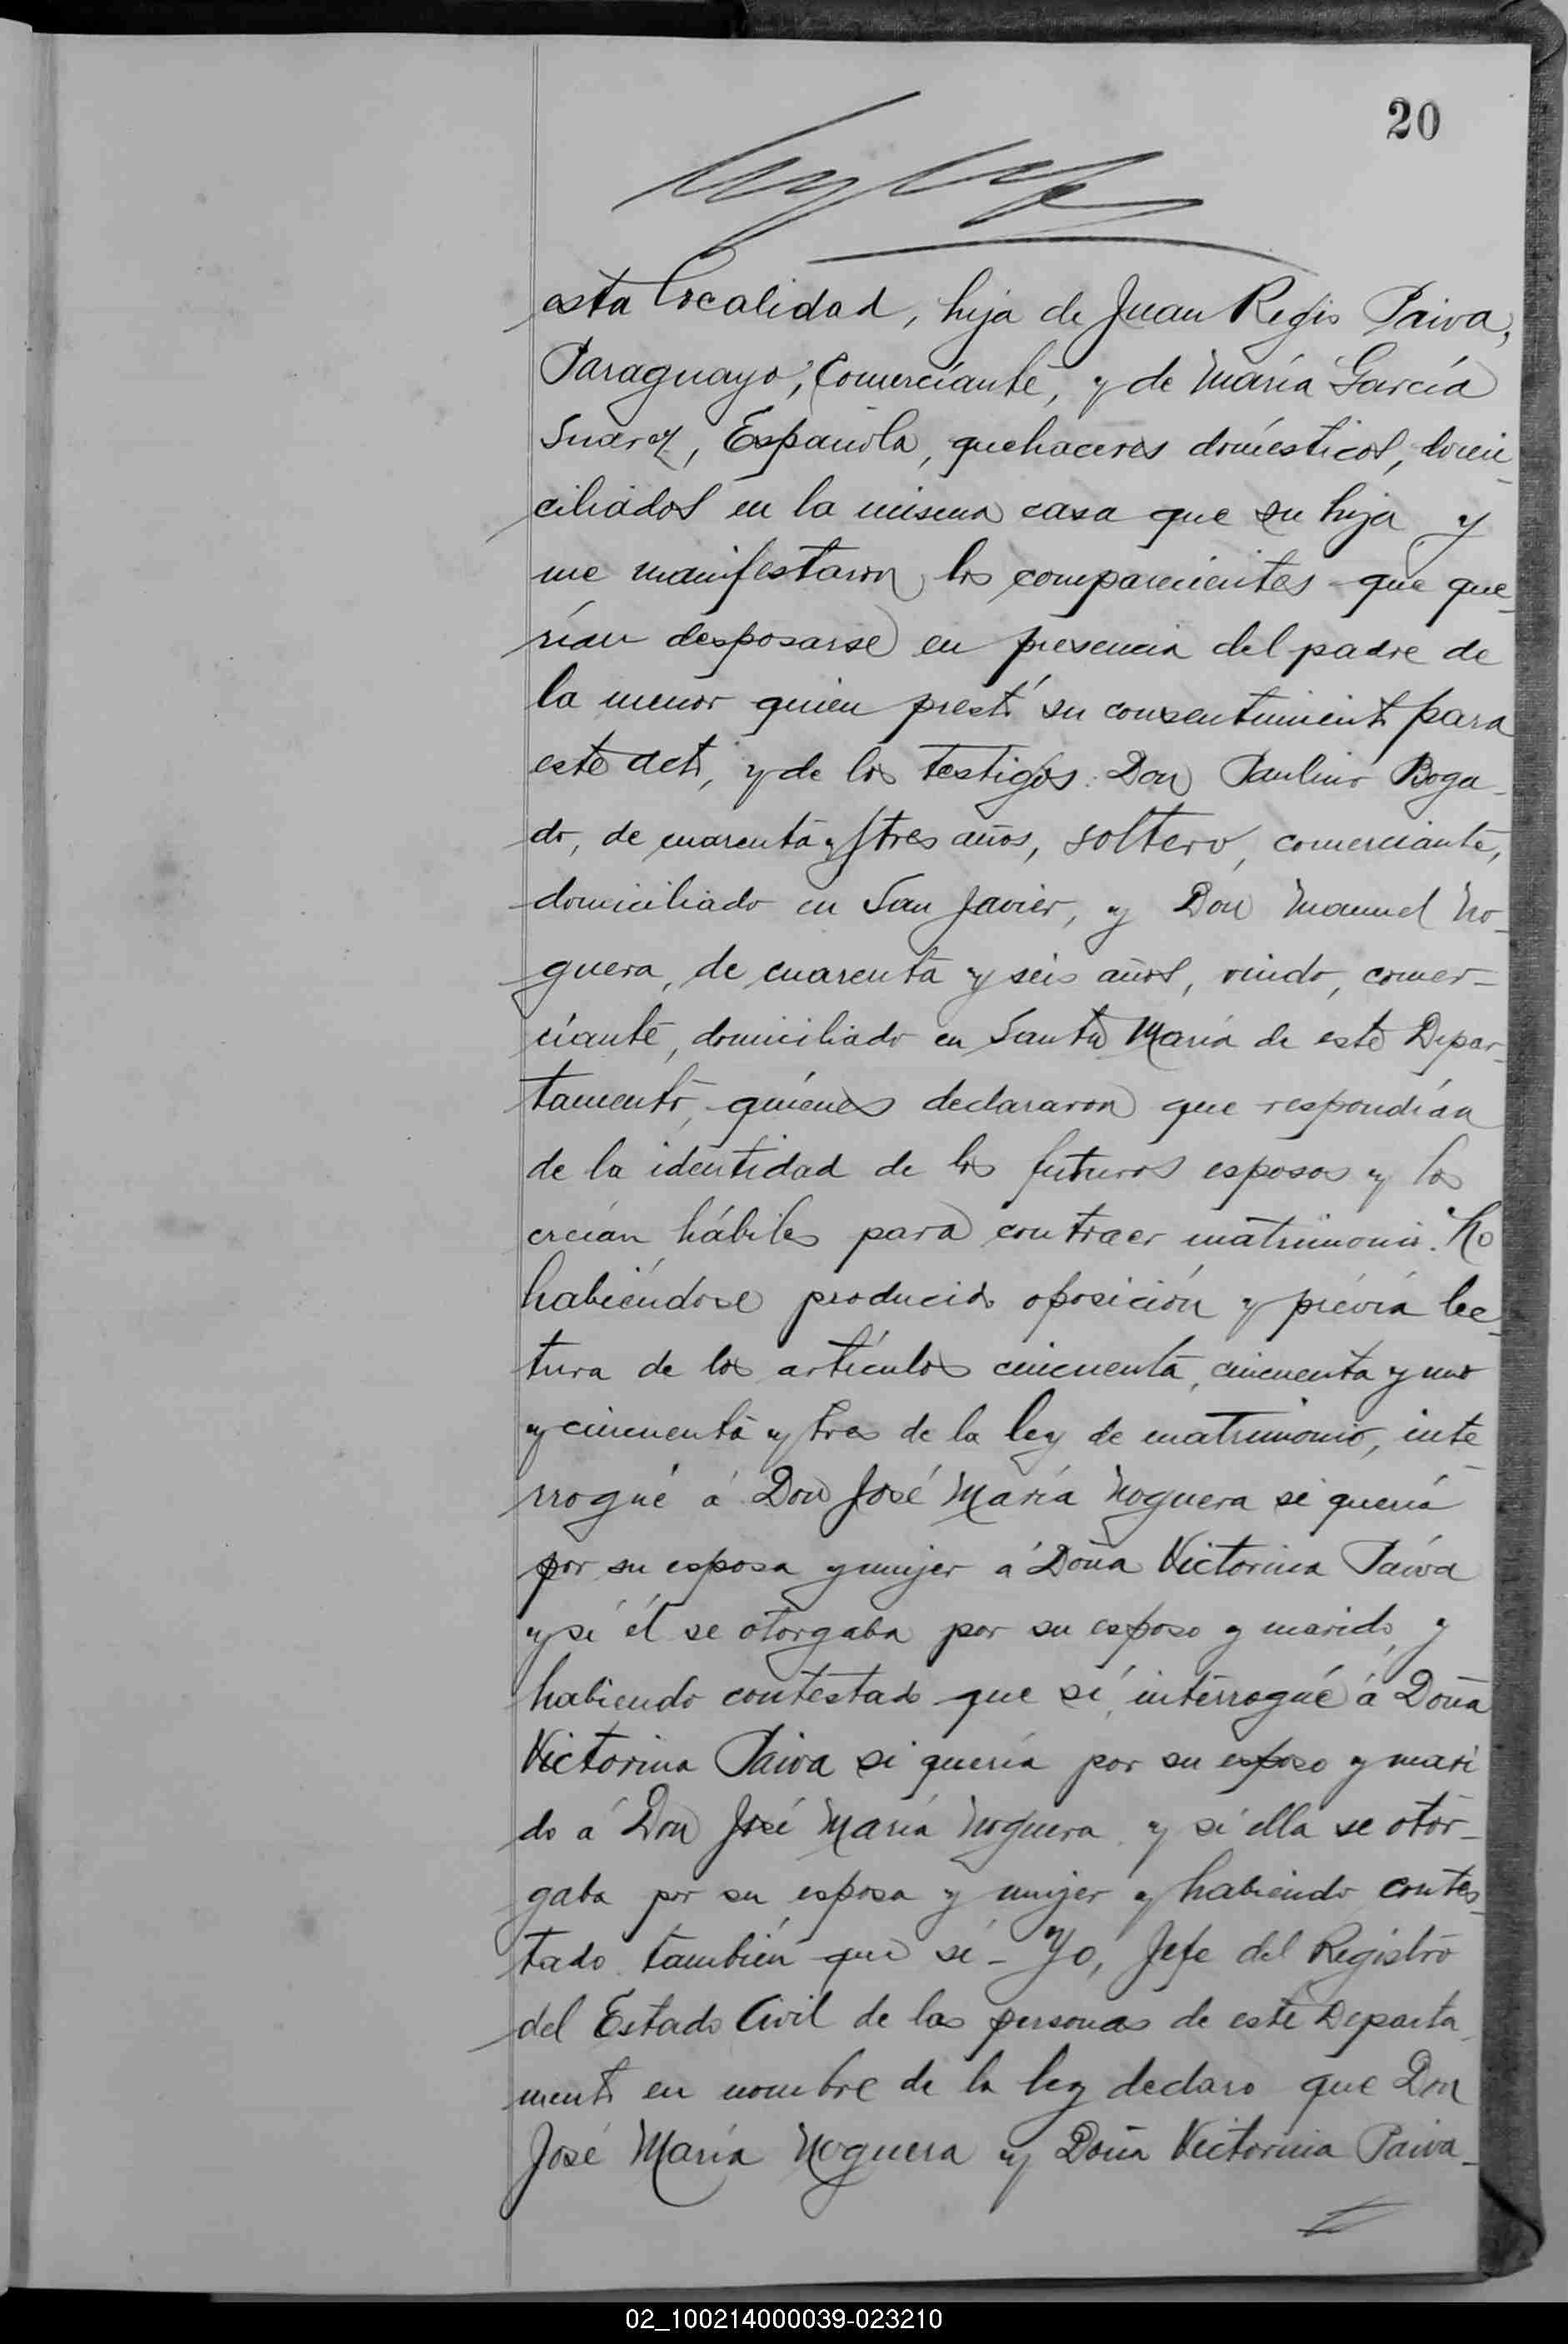 20
esta localidad, hija de Juan Regis Paiva,
Paraguayo, comerciante, y de María García
Suarez, Española, quehaceres domésticos, domi-
ciliados en la misma casa que su hija y
me manifestaron los comparecientes que que-
rían desposarse en presencia del padre de
la menor quien prestó su consentimiento para
este acto, y de los testigos: Don Paulino Boga-
do, de cuarenta y tres años, soltero, comerciante,
domiciliado en San Javier, y Don Manuel No-
guera, de cuarenta y seis años, viudo, comer-
ciante, domiciliado en Santa María de este Depar-
tamento, quiénes declararon que respondían
de la identidad de los futuros esposos y los
creían hábiles para contraer matrimonio. No
habiéndose producido oposición y prévia lec-
tura de los artículos cincuenta, cincuenta y uno
y cincuenta y tres de la ley de matrimonio, inte-
rrogué á Don José María Noguera si quería
por su esposa y mujer á Doña Victorina Paiva
y si él se otorgaba por su esposo y marido, y
habiendo contestado que sí, interrogué á Doña
Victorina Paiva si quería por su esposo y mari
do á Don José María Noguera y si ella se otor-
gaba por su esposa y mujer y habiendo contes-
tado también que sí - Yo, Jefe del Registro
del Estado Civil de las personas de este Departa-
mento en nombre de la ley declaro que Don
José María Noguera y Doña Victorina Paiva-
02_100214000039-023210